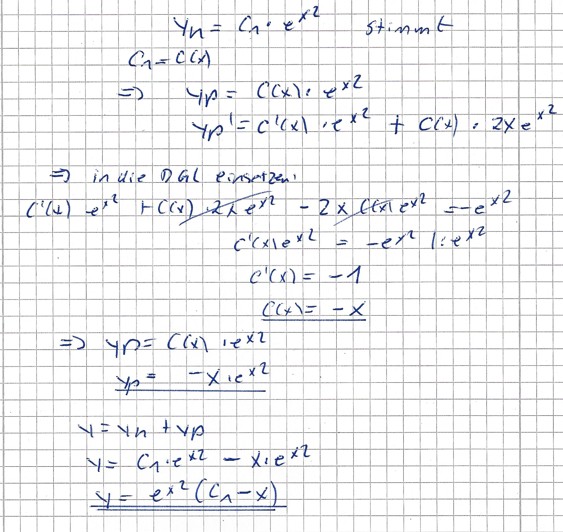 yh = C₁ · e^x² stimmt
C₁ = C(x)
⇒ yp = C(x) · e^x²
yp' = C'(x) · e^x² + C(x) · 2x e^x²
⇒ in die DGL einsetzen:
C'(x) e^x² + C(x) 2x e^x² - 2x C(x) e^x² = -e^x²
C'(x) e^x² = -e^x² |: e^x²
C'(x) = -1
C(x) = -x
⇒ yp = C(x) · e^x²
yp = -x · e^x²
y = yh + yp
y = C₁ · e^x² - x · e^x²
y = e^x² (C₁ - x)